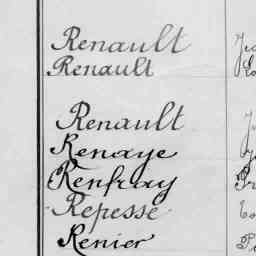 Renault
Renault
Renault
Renaye
Renfray
Repesse
Renier